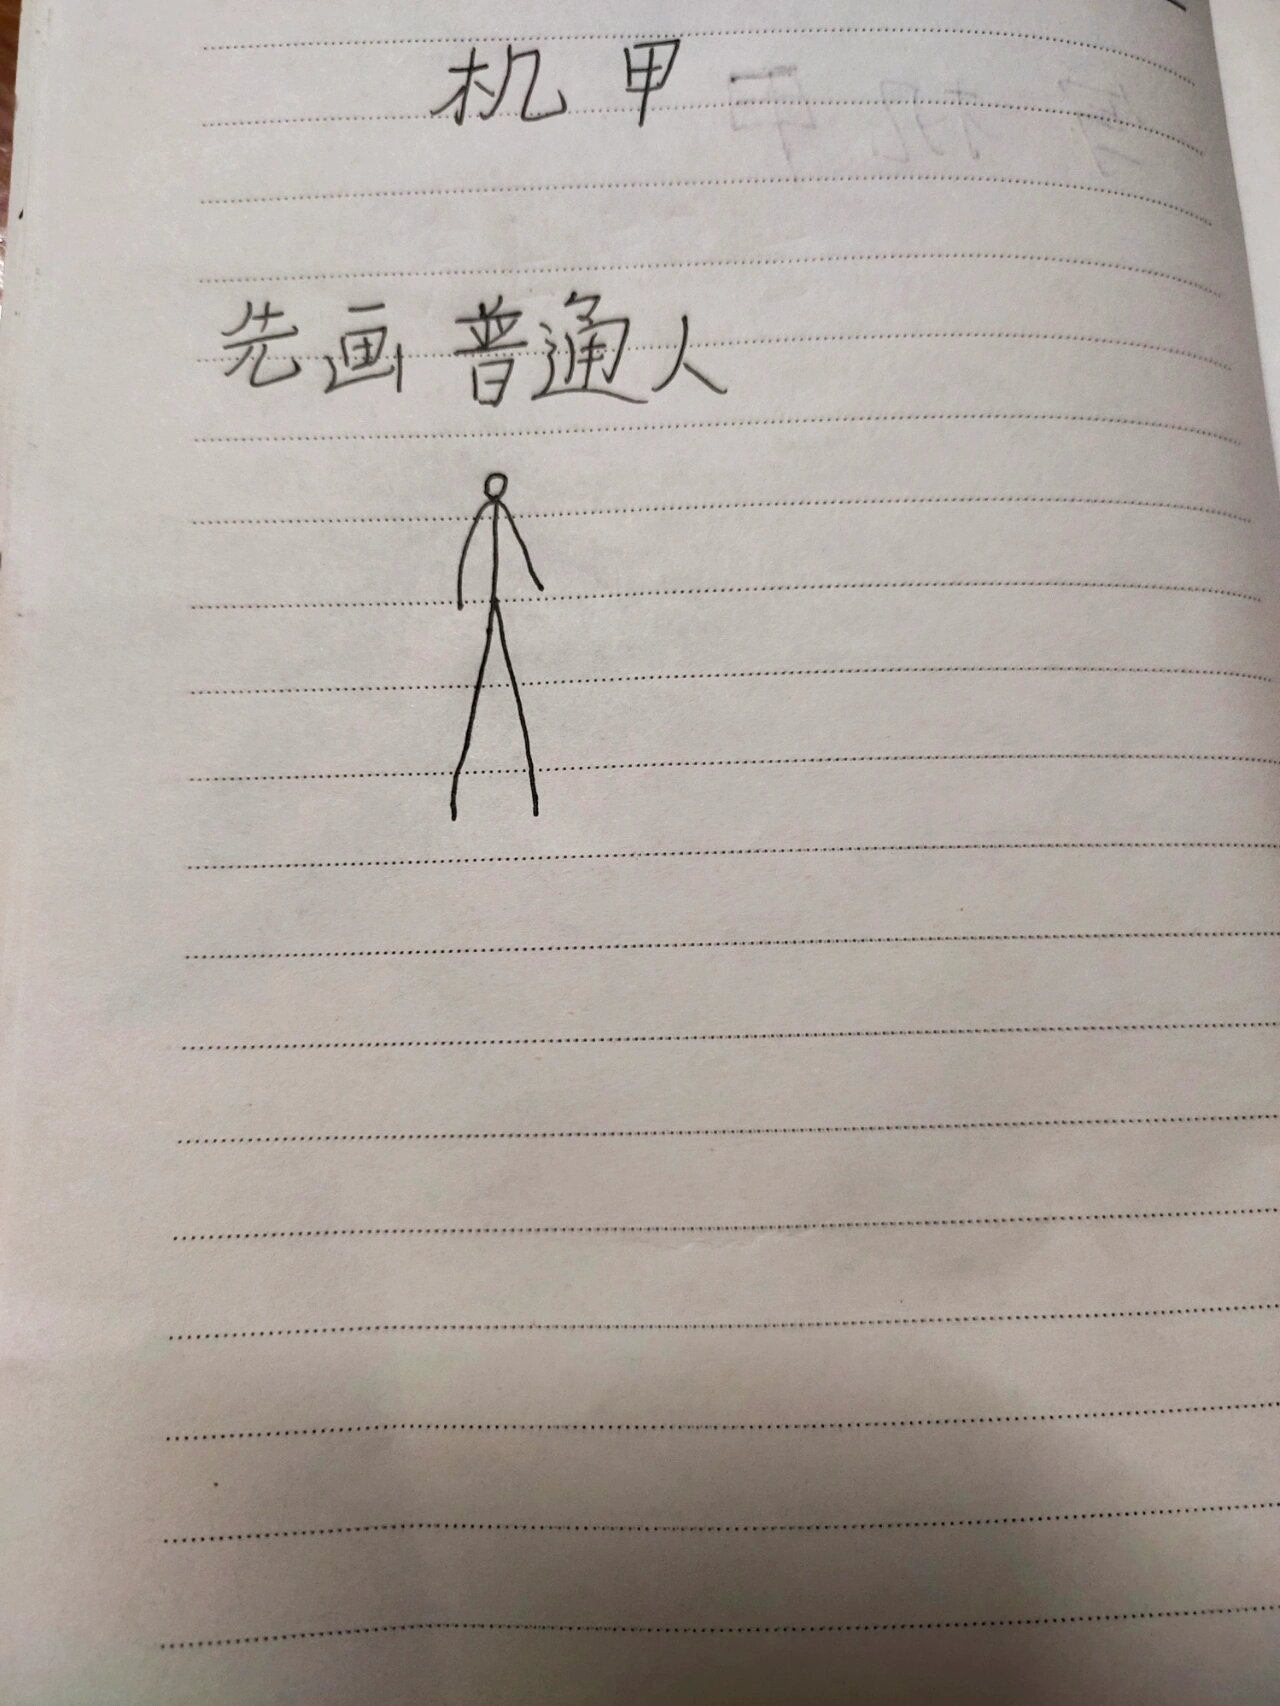 机甲
先画普通人